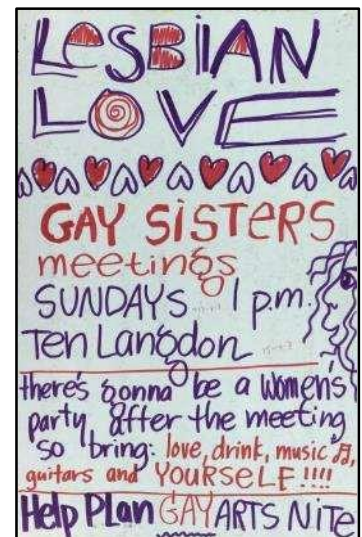 LESBIAN
LOVE
GAY SISTERS
meetings
SUNDAYS 1 p.m.
Ten Langdon
there's gonna be a women's
party after the meeting
so bring: love, drink, music ♫,
guitars and YOURSELF!!!!
Help PLan GAY ARTS NiTe